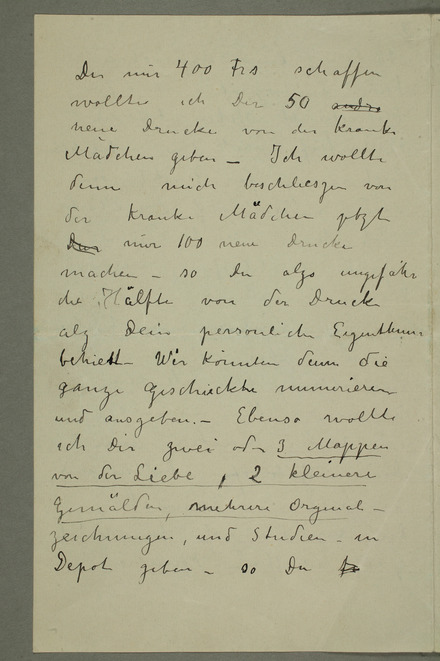 Du mir 400 Frs schaffen
wollte ich Der 50 andre
neue Drucke von der kranke
Mädchen geben – Ich wollte
denn mich beschlieszen von
der kranke Mädchen jetzt
Dur nur 100 neue Drucke
machen – so Du alzo ungefähr
die Hälfte von der Drucke
alz Dein personliche Eigenthum
behielt – Wir könnten denn die
ganze Geschickte numerieren
und ausgeben. – Ebenso wollte
ich Dir zwei oder 3 Mappen
von der Liebe, 2 kleinere
Gemälder, mehrere Original –
zeichnungen, und Studien – in
Depot geben – so Du